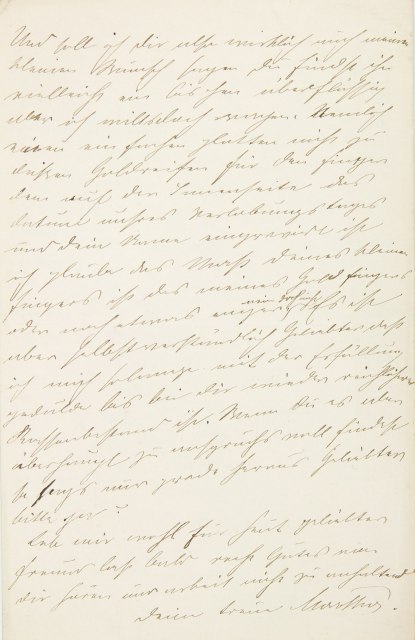 Und soll ich dir also wirklich auch meinen
kleinen Wunsch sagen du findest ihn
vielleicht ein bischen überflüssig
aber ich will doch Nemlich
einen einfachen glatten nicht zu
dicken Goldreifen für den Finger
dem auf der Innenseite das
datum unsres Verlobungstages
und dein Name eingravirt ist
ich glaube das Maß deines kleinen
fingers ist das meines Goldfingers
oder noch etwas enger es ist
aber selbstverständlich Geliebter daß
ich mich solange mit der Erfüllung
gedulde bis bei dir wieder reichlicher
Kassenbestand ist. Wenn du es aber
überhaupt zu anspruchsvoll findest
so sags mir grade heraus Geliebter
bitte ja?
Leb mir wohl für heut geliebter
freund laß bald recht Gutes von
dir hören und arbeit nicht zu anhaltend
deine treue Martha.